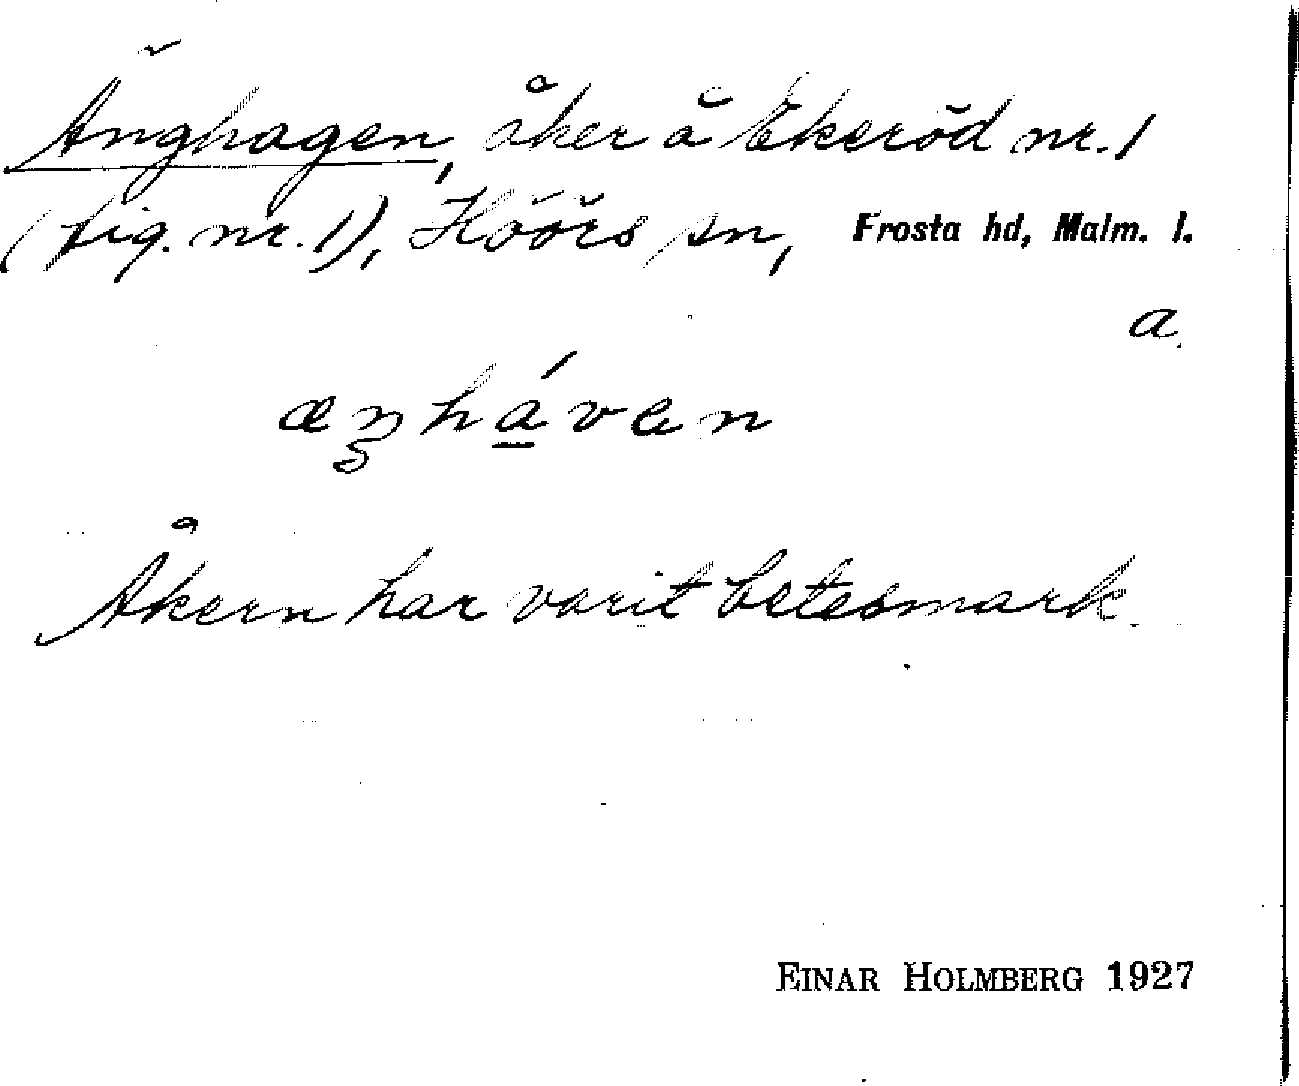 Änghagen, åker å Ekeröd nr. 1
(fig. nr. 1), Höörs sn, Frosta hd, Malm. l.
a.
Åkern har varit betesmark.
EINAR HOLMBERG 1927